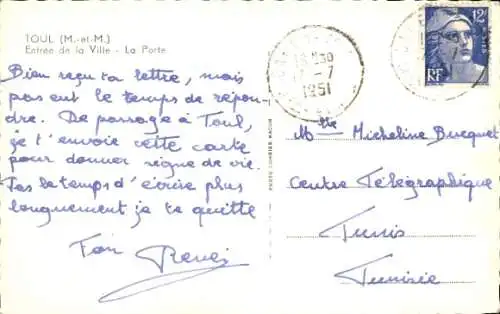 TOUL (M.-et-M.)
Entrée de la Ville - La Porte
Bien reçu ta lettre, mais
pas eut le temps de répon-
dre. De passage à Toul,
je t'envoie cette carte
pour donner signe de vie.
Pas le temps d'écrire plus
longuement je te quitte
Ton
René
PHOTO COMBIER MACON
18 30
17-7
1951
12F
RF
Mlle Micheline Bucquet
Centre Télégraphique
Tunis
Tunisie